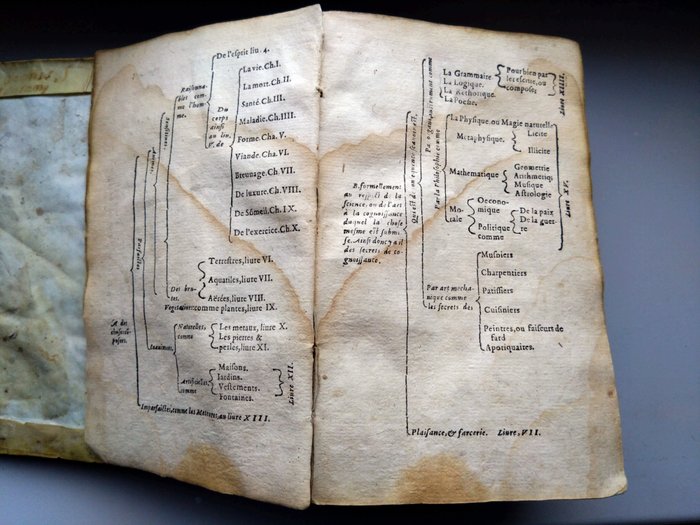 De l'esprit liu. 4.
Raisonnables comme l'homme.
Du corps ainsi au liu. V. de
La vie. Ch. I.
La mort. Ch. II.
Santé Ch. III.
Maladie. Ch. IIII.
Forme. Cha. V.
Viande. Cha. VI.
Breuuage. Ch. VII.
De luxure. Ch. VIII.
De Sõmeil Ch. IX.
De l'exercice. Ch. X.
Des brutes.
Terrestres, liure VI.
Aquatiles, liure VII.
Aërées, liure VIII.
Vegetatiues comme plantes, liure IX.
Parfaictes
Naturelles, comme
Les metaux, liure X.
Les pierres &
perles, liure XI.
Artificielles, comme
Maisons.
Iardins.
Vestements.
Fontaines.
Liure XII.
Imparfaictes, comme les Meteores, au liure XIII.
B. formellement
au respect de la
science, ou de l'art
à la cognoissance
duquel la chose
mesme est submise.
Par la Philosophie comme
La Grammaire
La Logique.
La Rethorique.
La Poesie.
Pour bien parler
escrire, ou
composer
Liure XIIII.
La Physique, ou Magie naturelle
Metaphysique.
Licite
Illicite
Mathematique
Geometrie
Arithmetiq;
Musique
Astrologie
Morale
Oeconomique
Politique
comme
De la paix
De la guerre
Liure XV.
Par art mechanique comme
les secrets des
Musniers
Charpentiers
Patissiers
Cuisiniers
Peintres, ou faiseurs de
fard
Apotiquaires.
Plaisance, & farcerie. Liure, VII.